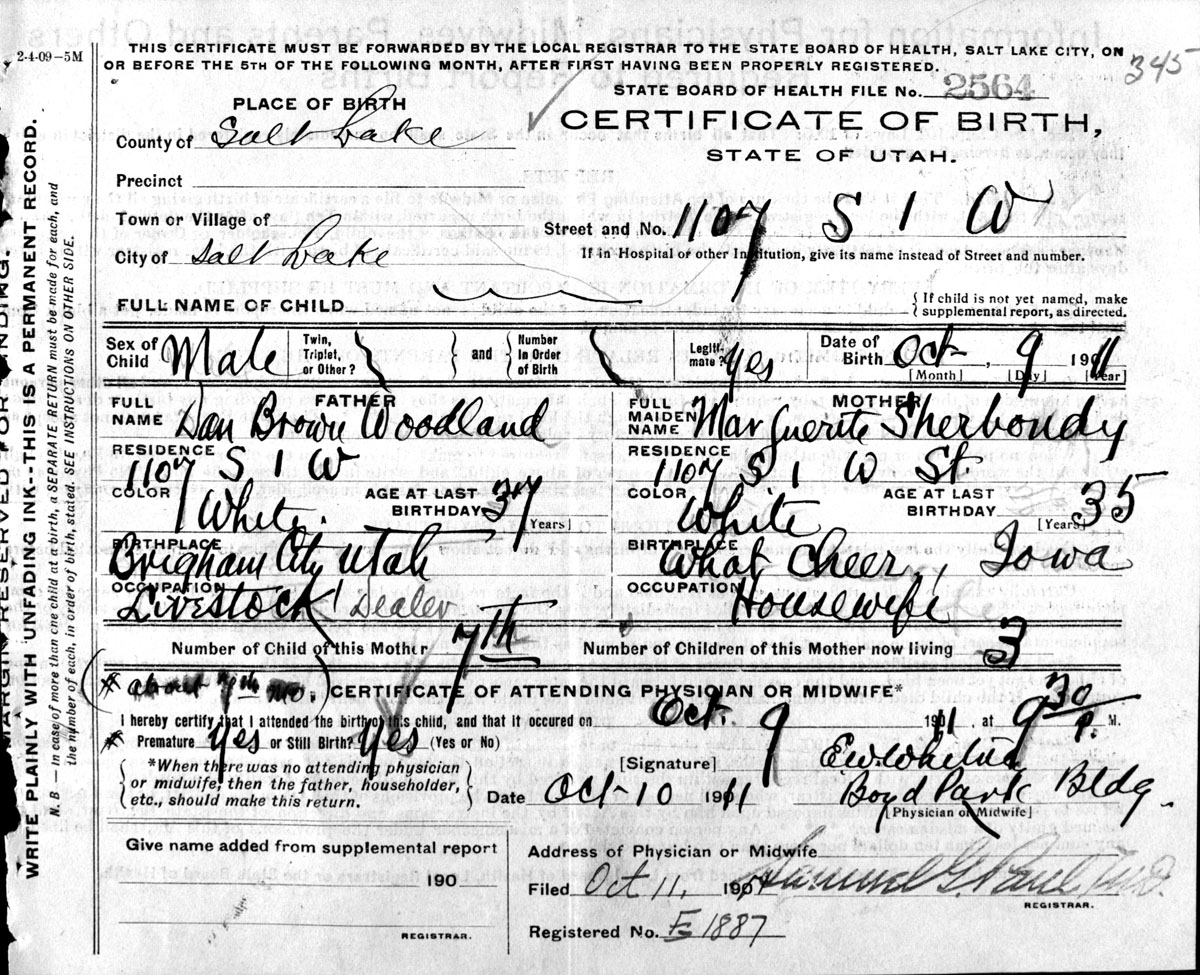 2-4-09-5M
THIS CERTIFICATE MUST BE FORWARDED BY THE LOCAL REGISTRAR TO THE STATE BOARD OF HEALTH, SALT LAKE CITY, ON
OR BEFORE THE 5TH OF THE FOLLOWING MONTH, AFTER FIRST HAVING BEEN PROPERLY REGISTERED.
345
STATE BOARD OF HEALTH FILE No. 2564
PLACE OF BIRTH
CERTIFICATE OF BIRTH,
STATE OF UTAH.
County of Salt Lake
Precinct
Town or Village of
Street and No. 1107 S 1 W
City of Salt Lake
If in Hospital or other Institution, give its name instead of Street and number.
FULL NAME OF CHILD
{ If child is not yet named, make
supplemental report, as directed.
Sex of Child Male
Twin, Triplet, or Other?
and
Number in Order of Birth
Legiti-mate? Yes
Date of Birth Oct 9 1911
[Month] [Day] [Year]
FATHER
FULL NAME Dan Brown Woodland
MOTHER
FULL MAIDEN NAME Marguerite Sherbondy
RESIDENCE 1107 S 1 W
RESIDENCE 1107 S 1 W St
COLOR White.
AGE AT LAST BIRTHDAY 37 [Years]
COLOR White
AGE AT LAST BIRTHDAY 35 [Years]
BIRTHPLACE Brigham City Utah
BIRTHPLACE What Cheer, Iowa
OCCUPATION Livestock Dealer
OCCUPATION Housewife
Number of Child of this Mother 7th
Number of Children of this Mother now living 3
(* about 7th mo.)
CERTIFICATE OF ATTENDING PHYSICIAN OR MIDWIFE*
I hereby certify that I attended the birth of this child, and that it occured on Oct. 9 1911, at 9 30 P. M.
* Premature Yes or Still Birth? Yes (Yes or No)
{ *When there was no attending physician
or midwife, then the father, householder,
etc., should make this return. }
[Signature] E. W. Whitney
Date Oct 10 1911
Boyd Park Bldg.
[Physician or Midwife]
Give name added from supplemental report
190
REGISTRAR.
Address of Physician or Midwife
Filed Oct 11, 1901 Samuel G. Paul M.D.
REGISTRAR.
Registered No. E 1887
MARGIN RESERVED FOR BINDING.
WRITE PLAINLY WITH UNFADING INK--THIS IS A PERMANENT RECORD.
N. B — In case of more than one child at a birth, a SEPARATE RETURN must be made for each, and
the number of each, in order of birth, stated. SEE INSTRUCTIONS ON OTHER SIDE.